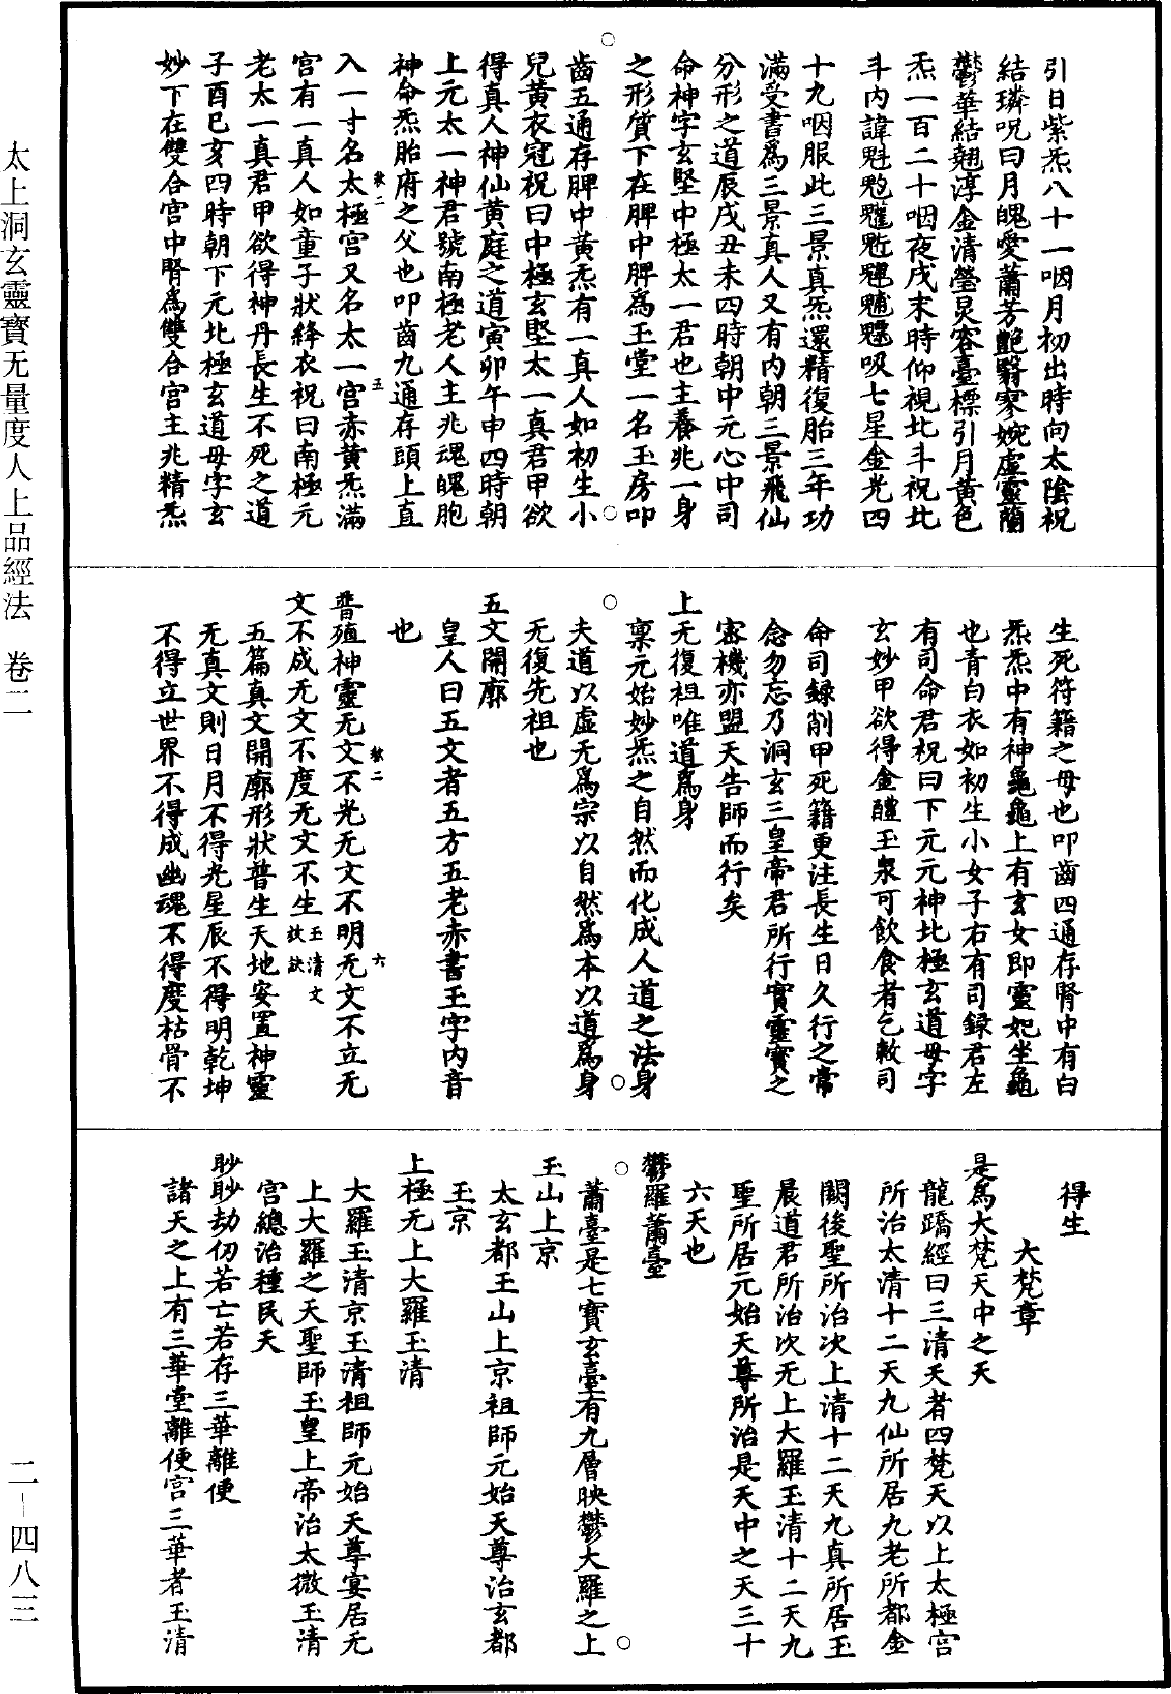 引日紫炁八十一咽月初出時向太陰祝
結璘呪曰月魄愛蕭芳艷翳寥婉虛靈蘭
鬱華結翹淳金清瑩炅容臺標引月黃色
炁一百二十咽夜戌末時仰視北斗祝北
斗内諱魁䰢䰡魓䰠䰟䰢吸七星金光四
十九咽服此三景真炁還精復胎三年功
滿受書為三景真人又有内朝三景飛仙
分形之道辰戌丑未四時朝中元心中司
命神字玄堅中極太一君也主養兆一身
之形質下在脾中脾為玉堂一名玉房叩
齒五通存脾中黃炁有一真人如初生小
兒黃衣冠祝曰中極玄堅太一真君甲欲
得真人神仙黃庭之道寅卯午申四時朝
上元太一神君號南極老人主兆魂魄胞
神命炁胎府之父也叩齒九通存頭上直
入一寸名太極宮又名太一宮赤黃炁滿
宮有一真人如童子狀絳衣祝曰南極元
老太一真君甲欲得神丹長生不死之道
子酉巳亥四時朝下元北極玄道母字玄
妙下在雙合宮中腎為雙合宮主兆精炁
生死符籍之母也叩齒四通存腎中有白
炁炁中有神龜龜上有玄女即靈妃坐龜
也青白衣如初生小女子右有司錄君左
有司命君祝曰下元元神北極玄道母字
玄妙甲欲得金醴玉泉可飲食者乞敕司
命司錄削甲死籍更注長生日久行之常
念勿忘乃洞玄三皇帝君所行實靈寶之
密機亦盟天告師而行矣
上无復祖唯道為身
稟元始妙炁之自然而化成人道之法身
夫道以虛无為宗以自然為本以道為身
无復先祖也
五文開廓
皇人曰五文者五方五老赤書玉字内音
也
普殖神靈无文不光无文不明无文不立无
文不成无文不度无文不生玉清文
五篇真文開廓形狀普生天地安置神靈
无真文則日月不得光星辰不得明乾坤
不得立世界不得成幽魂不得度枯骨不
得生
大梵章
是為大梵天中之天
龍蹻經曰三清天者四梵天以上太極宮
所治太清十二天九仙所居九老所都金
闕後聖所治次上清十二天九真所居玉
晨道君所治次无上大羅玉清十二天九
聖所居元始天尊所治是天中之天三十
六天也
鬱羅蕭臺
蕭臺是七寶玄臺有九層映鬱大羅之上
玉山上京
太玄都玉山上京祖師元始天尊治玄都
玉京
上極无上大羅玉清
大羅玉清京玉清祖師元始天尊宴居无
上大羅之天聖師玉皇上帝治太微玉清
宮總治種民天
眇眇劫仞若亡若存三華離便
諸天之上有三華堂離便宮三華者玉清
太上洞玄靈寶无量度人上品經法 卷二
二—四八三